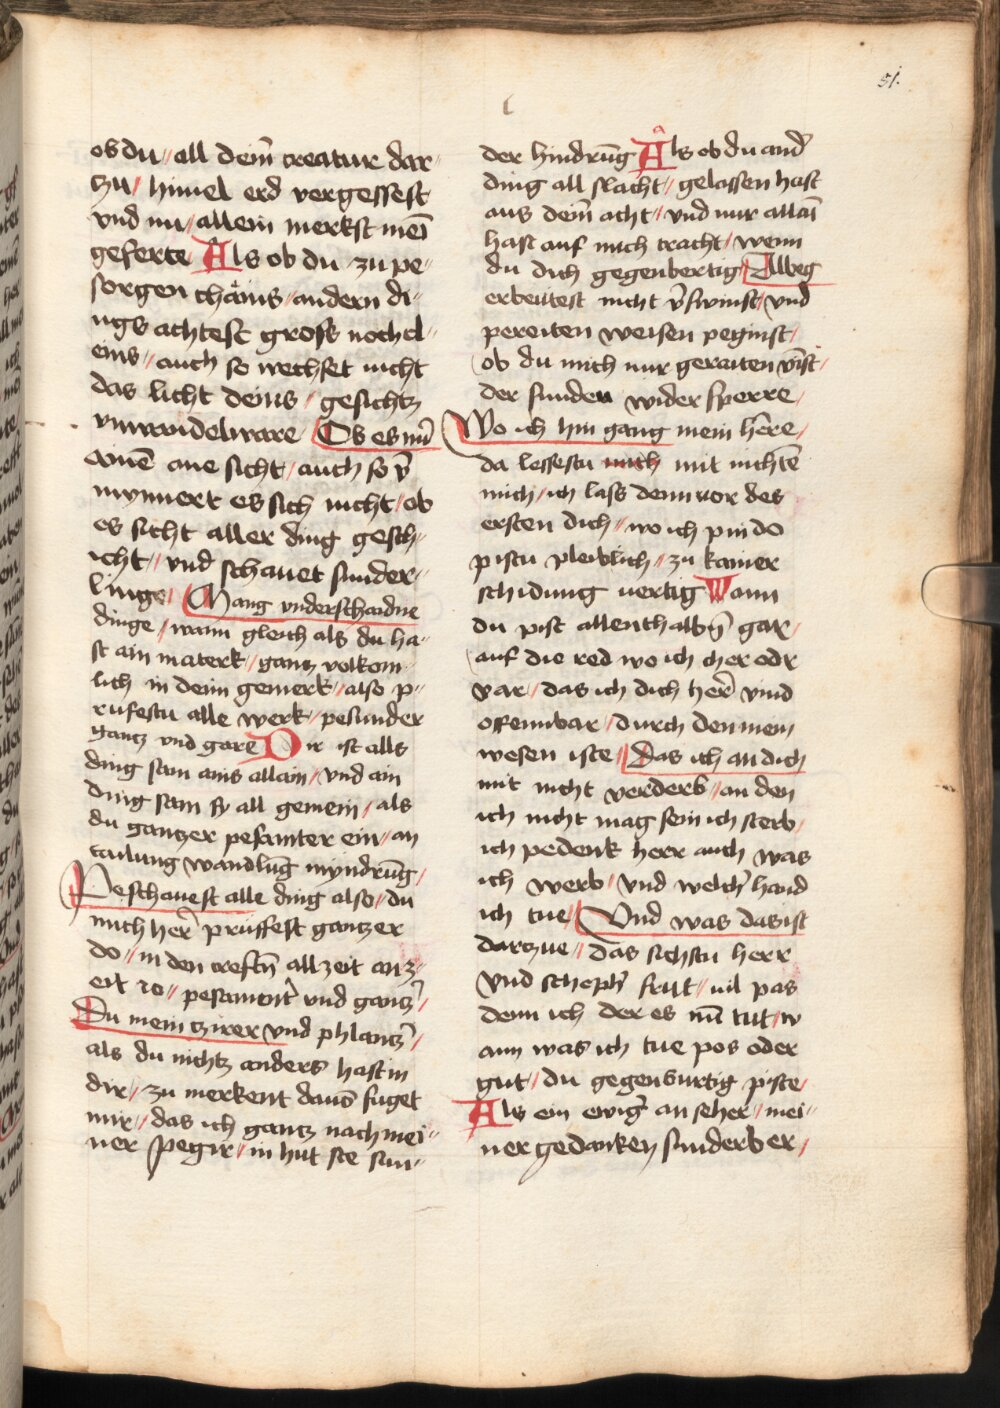 51.
ob du // all dein̄ creatur dar-
zu / himel erd vergessest
vnd nu / allein merkst meī
geferte Als ob du zu pe-
sorgen chains / andern di-
ngs achtest gross noch cl-
eins // auch so wechset nicht
das licht deins // gesichtz
vnwandelware Ob es nū
ainē ane sicht / auch so v̄
mynnert es sich nicht / ob
es sicht aller ding gesch-
icht // vnd schauet sunder-
linge / Mang vnderschaidne
dinge / wann gleich als du ha-
st ain materk / gantz volkom-
lich in deim gemerk / also p-
rufestu alle werk / pesunder
gantz vnd gare Dir ist alls
ding sam ains allain / vnd ain
ding sam sy all gemein / als
du gantzer pesamter ein / an
tailung wandlūg myndrūg /
Peschauest alle ding also // du
mich her̄ pruffest gantzer
do // in den creftn̄ all zeit an z-
eit ro // pesament̄ vnd gantz̄ /
Du mein tzirer vnd phlantz̄ /
als du nichtz anders hast in
dir / zu merkent daus̄ fuget
mir // das ich gantz nach mei-
ner pegir / in hut ste sun-
der hindrūg Als ob du and̄
ding all slacht // gelassen hast
aus dein̄ acht // vnd nur allaī
hast auf mich tracht / wenn
du dich gegenbertig / Albeg
erbeutest nicht v̄swinst / vnd
pereiten weisen peginst /
ob du mich nur geraiten vīst /
der sunden wider sperre /
Wo ich hin gang mein h̄ere /
da lessestu mich mit nichtē
mich / ich lass denn vor des
ersten dich // wo ich pin do
pistu pleiblich // zu kainer
schidung vertig Wann
du pist allenthalbn̄ gar /
auf die red wo ich cher odr
var / das ich dich her̄ vind
offennbar / durch den mein
wesen iste / Das ich an dich
mit nicht verderb // an den
ich nicht mag sein ich sterb /
ich pedenk herr auch was
ich werb / vnd welch̄ hand
ich tue / Vnd was das ist
dartzue // das sichstu herr
vnd scheph̄ frut // vil pas
denn ich der es nū tut / w
ann was ich tue pos oder
gut / du gegenburtig piste /
Als ein ewiḡ an seher / mei-
ner gedanken sunderber /